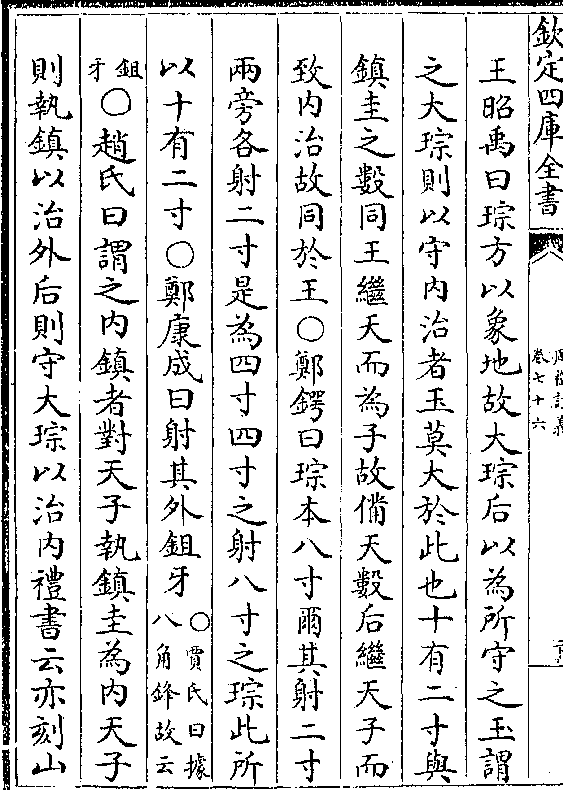 欽定四庫全書
卷七十六
王昭禹曰琮方以象地故大琮后以為所守之玉謂
之大琮則以守内治者玉莫大於此也十有二寸與
鎮圭之數同王繼天而為子故備天數后繼天子而
致内治故同於王○鄭鍔曰琮本八寸爾其射二寸
兩旁各射二寸是為四寸四寸之射八寸之琮此所
以十有二寸○鄭康成曰射其外鉏牙○賈氏曰據八角鋒故云
鉏牙○趙氏曰謂之内鎮者對天子執鎮圭為内天子
則執鎮以治外后則守大琮以治内禮書云亦刻山